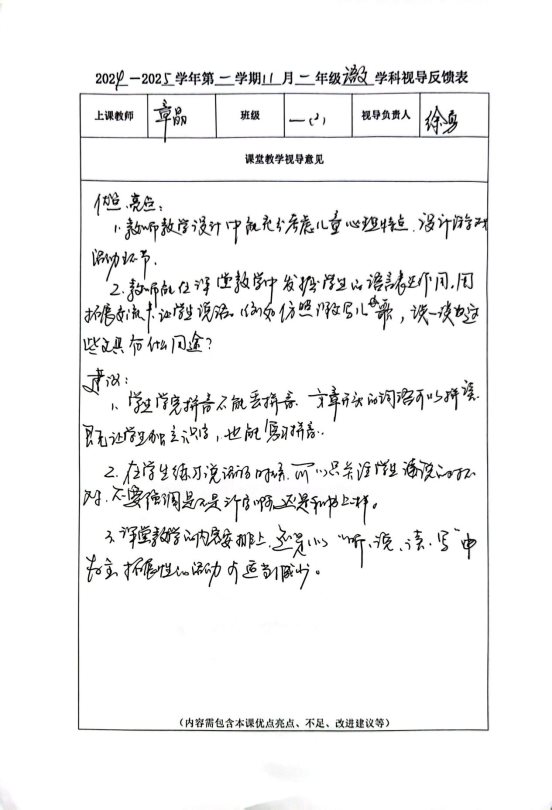 2024—2025学年第一学期11月二年级语文学科视导反馈表
上课教师 章晶 班级 一(2) 视导负责人 徐勇
课堂教学视导意见
优点、亮点:
1、教师教学设计中能充分考虑儿童心理特点,设计
活动环节。
2、教师能在课堂教学中发挥学生的语言表达作用,用
拓展交流卡让学生说话。例如仿照课文写儿歌,说一说这
些文具有什么用途?
建议:
1、学生学完拼音不能丢拼音,文章开头的词语可以拼读
既能让学生独立识字,也能复习拼音。
2、在学生练习说话的时候,可以只关注学生说的对不
对,不要强调是不是
3、课堂教学的内容安排上,还是以"听、说、读、写"
为主,拓展性的活动可适当减少。
(内容需包含本课优点亮点、不足、改进建议等)